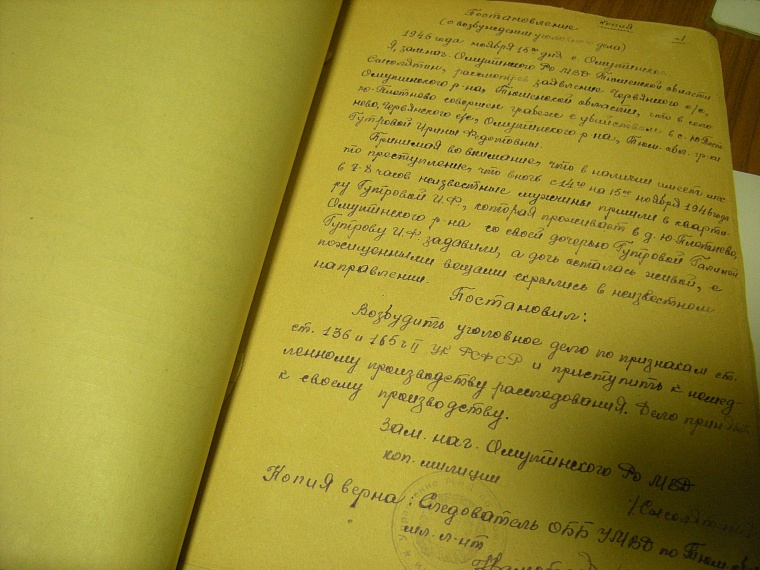 Постановление копия
(о возбуждении уголовного дела)
1946 года ноября 15го дня с. Омутинское
Я, зам.нач. Омутинского Ро МВД Тюменской области
рассмотрев заявление Червянского с/с,
Омутинского р-на, Тюменской области, что в селе
по-Плотново совершен грабеж с убийством в с.
ново, Червянского с/с, Омутинского р-на, Тюм. обл. гр-ки
Гутровой Ирины Федотовны.
Принимая во внимание, что в наличии имеет мес
то преступление, что вночь с 14го на 15ое ноября 1946 года
в 7-8 часов неизвестные мужчины пришли в кварти-
ру Гутровой И.Ф., которая проживает в д. Ю-Плотново,
Омутинского р-на со своей дочерью Гутровой Галиной
Гутрову И.Ф. задавили, а дочь осталась живой, с
похищенными вещами скрылись в неизвестном
направлении.
Постановил:
Возбудить уголовное дело по признакам ст.
ст. 136 и 165 ч II УК РСФСР и приступить к немед-
ленному производству расследования. Дело принять
к своему производству.
Зам. нач. Омутинского Ро МВД
кап. милиции
Копия верна: Следователь ОББ УМВД по Тюм.
мл. л-нт